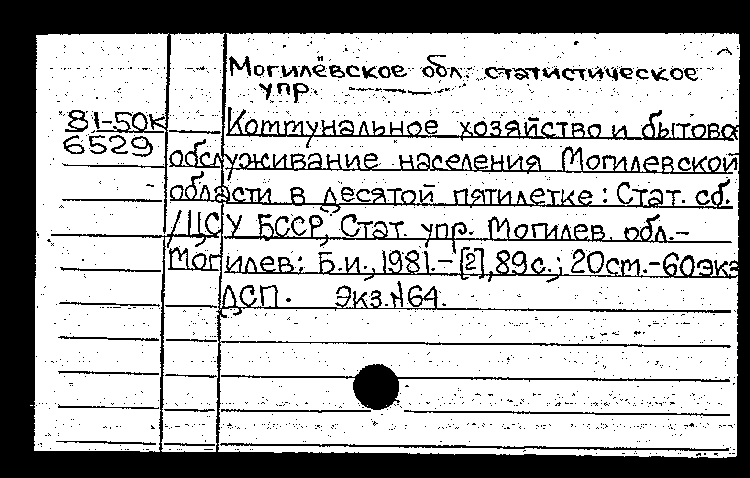 Могилёвское обл. статистическое
упр.
81-50к
6529
Коммунальное хозяйство и бытово
обслуживание населения Могилевской
области в десятой пятилетке: Стат. сб.
/ЦСУ БССР, Стат. упр. Могилев. обл.-
Могилев: Б.и., 1981.-[2], 89с.; 20см.-60экз
ДСП. Экз.N64.